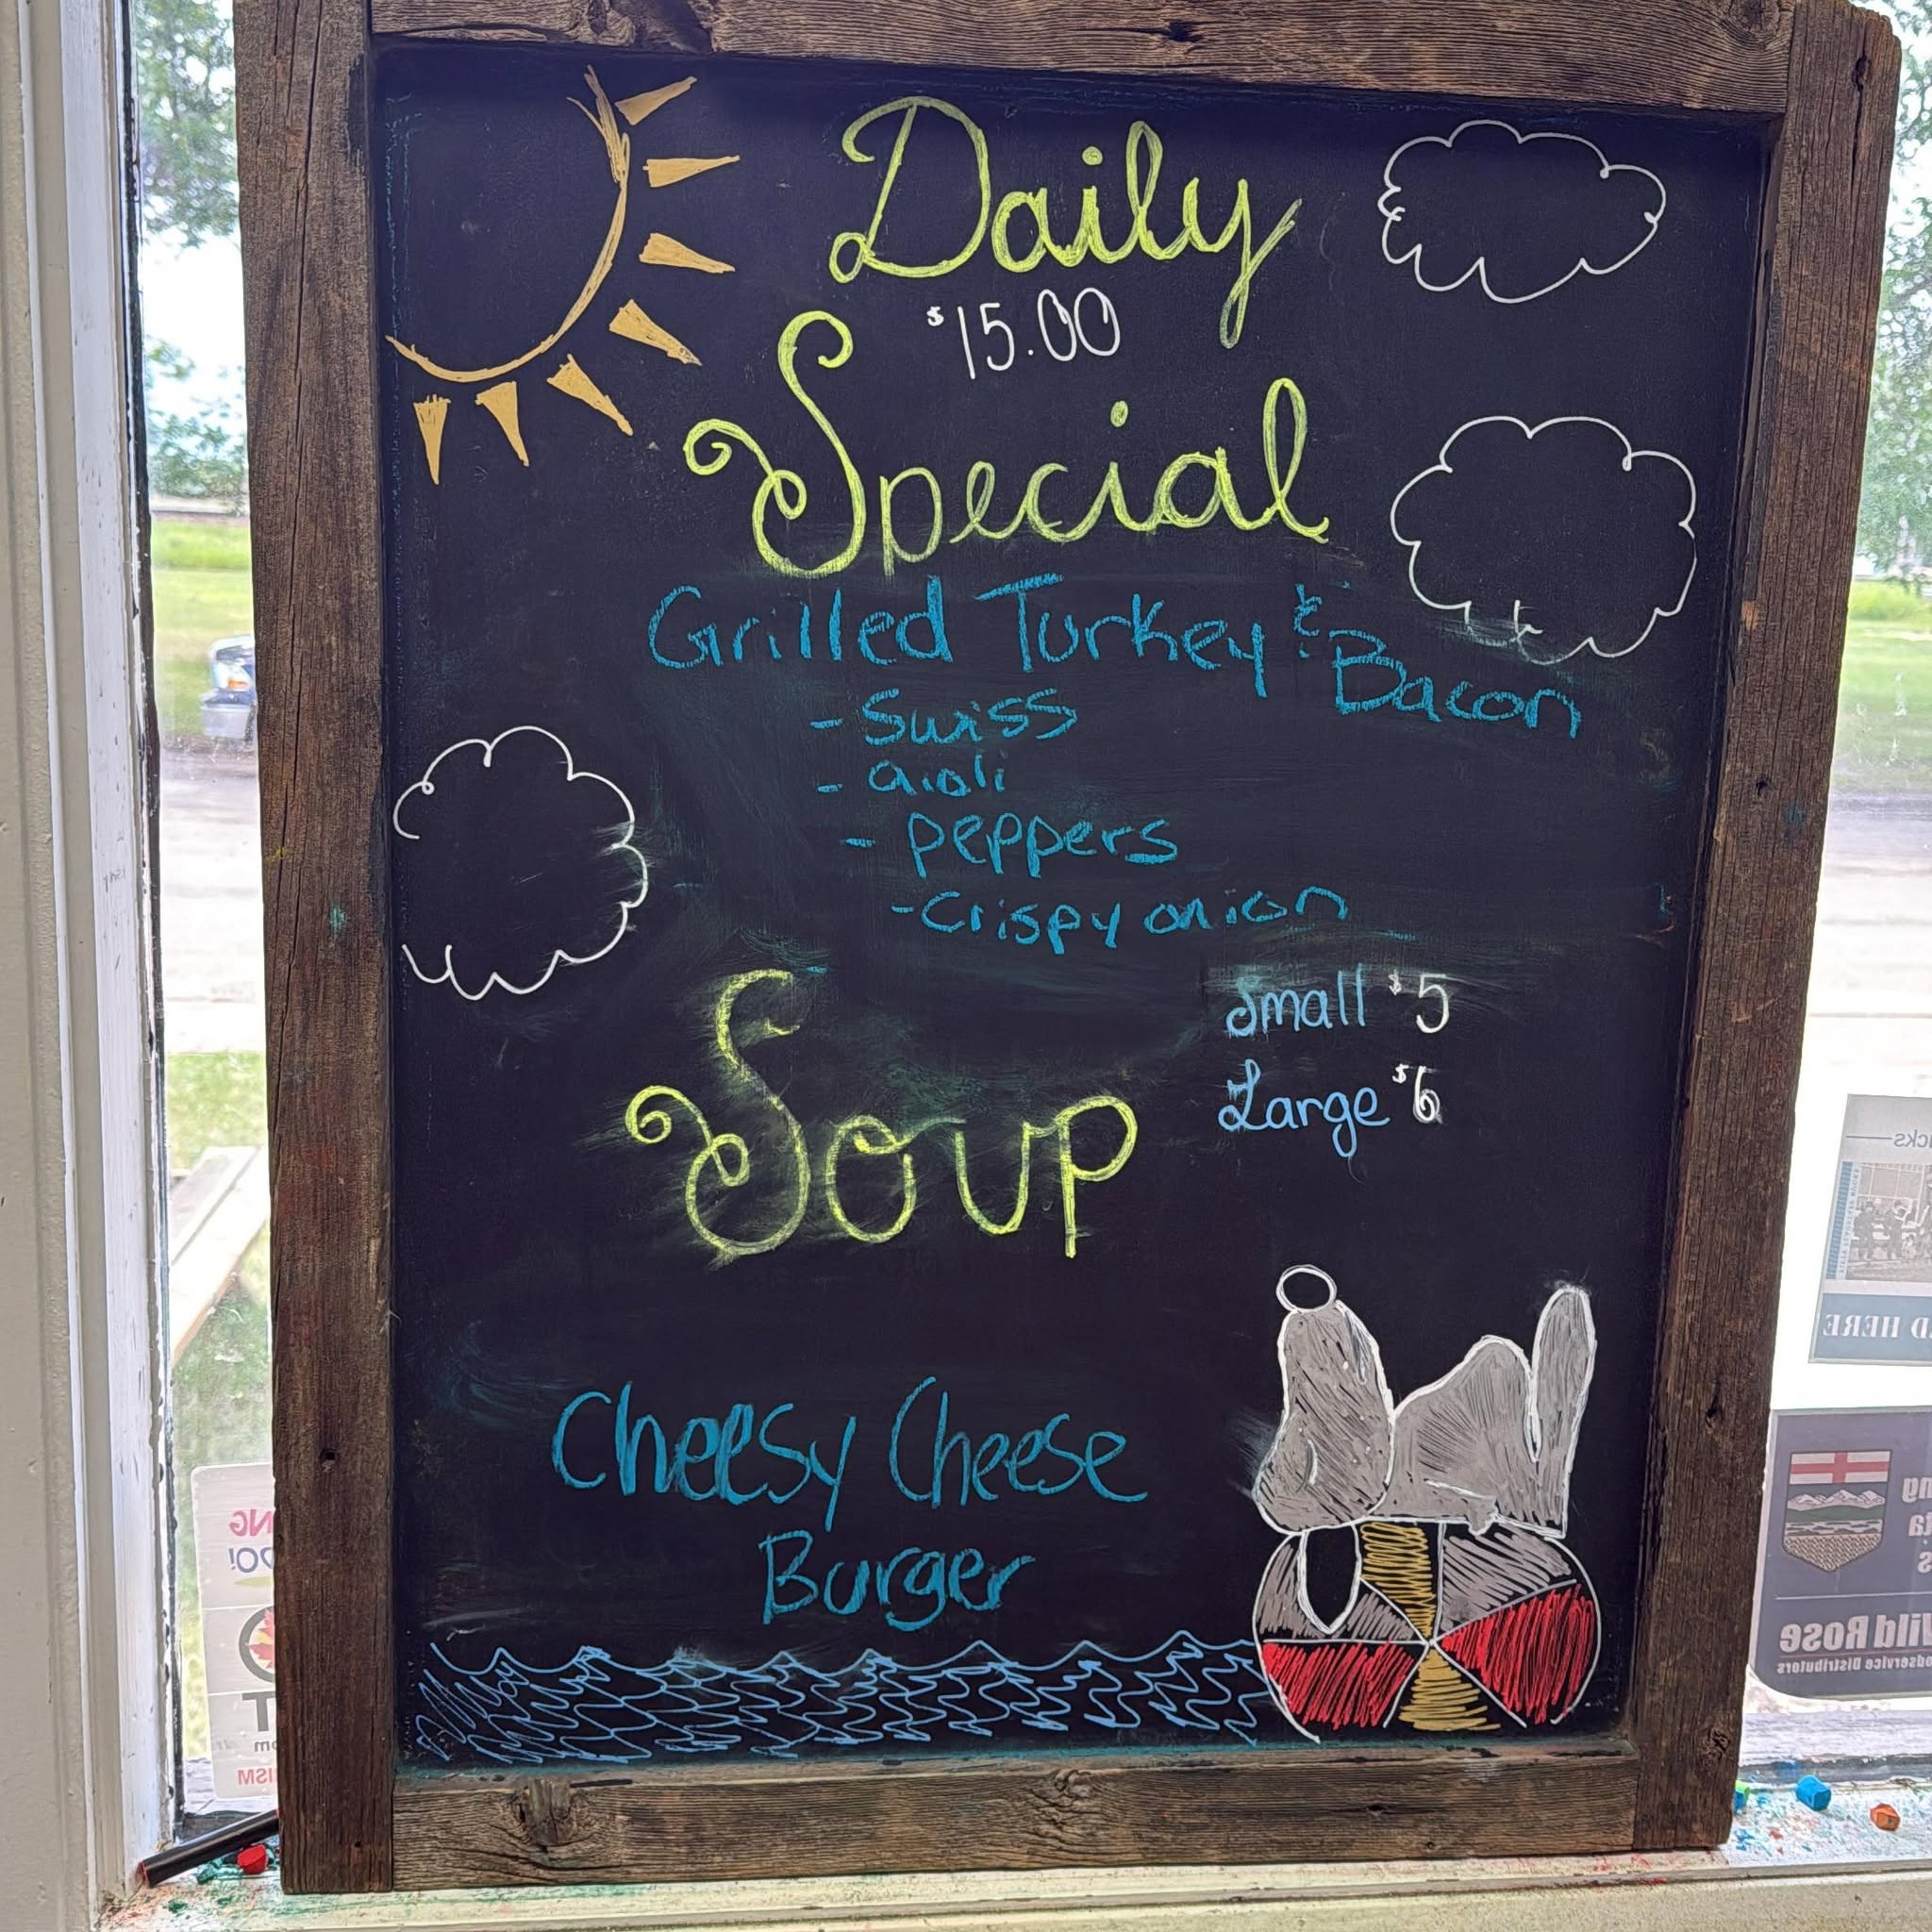 Daily
$15.00
Special
Grilled Turkey & Bacon
- Swiss
- aioli
- peppers
- Crispy onion
Small $5
Large $6
Soup
Cheesy Cheese
Burger
D HERE
Wild Rose